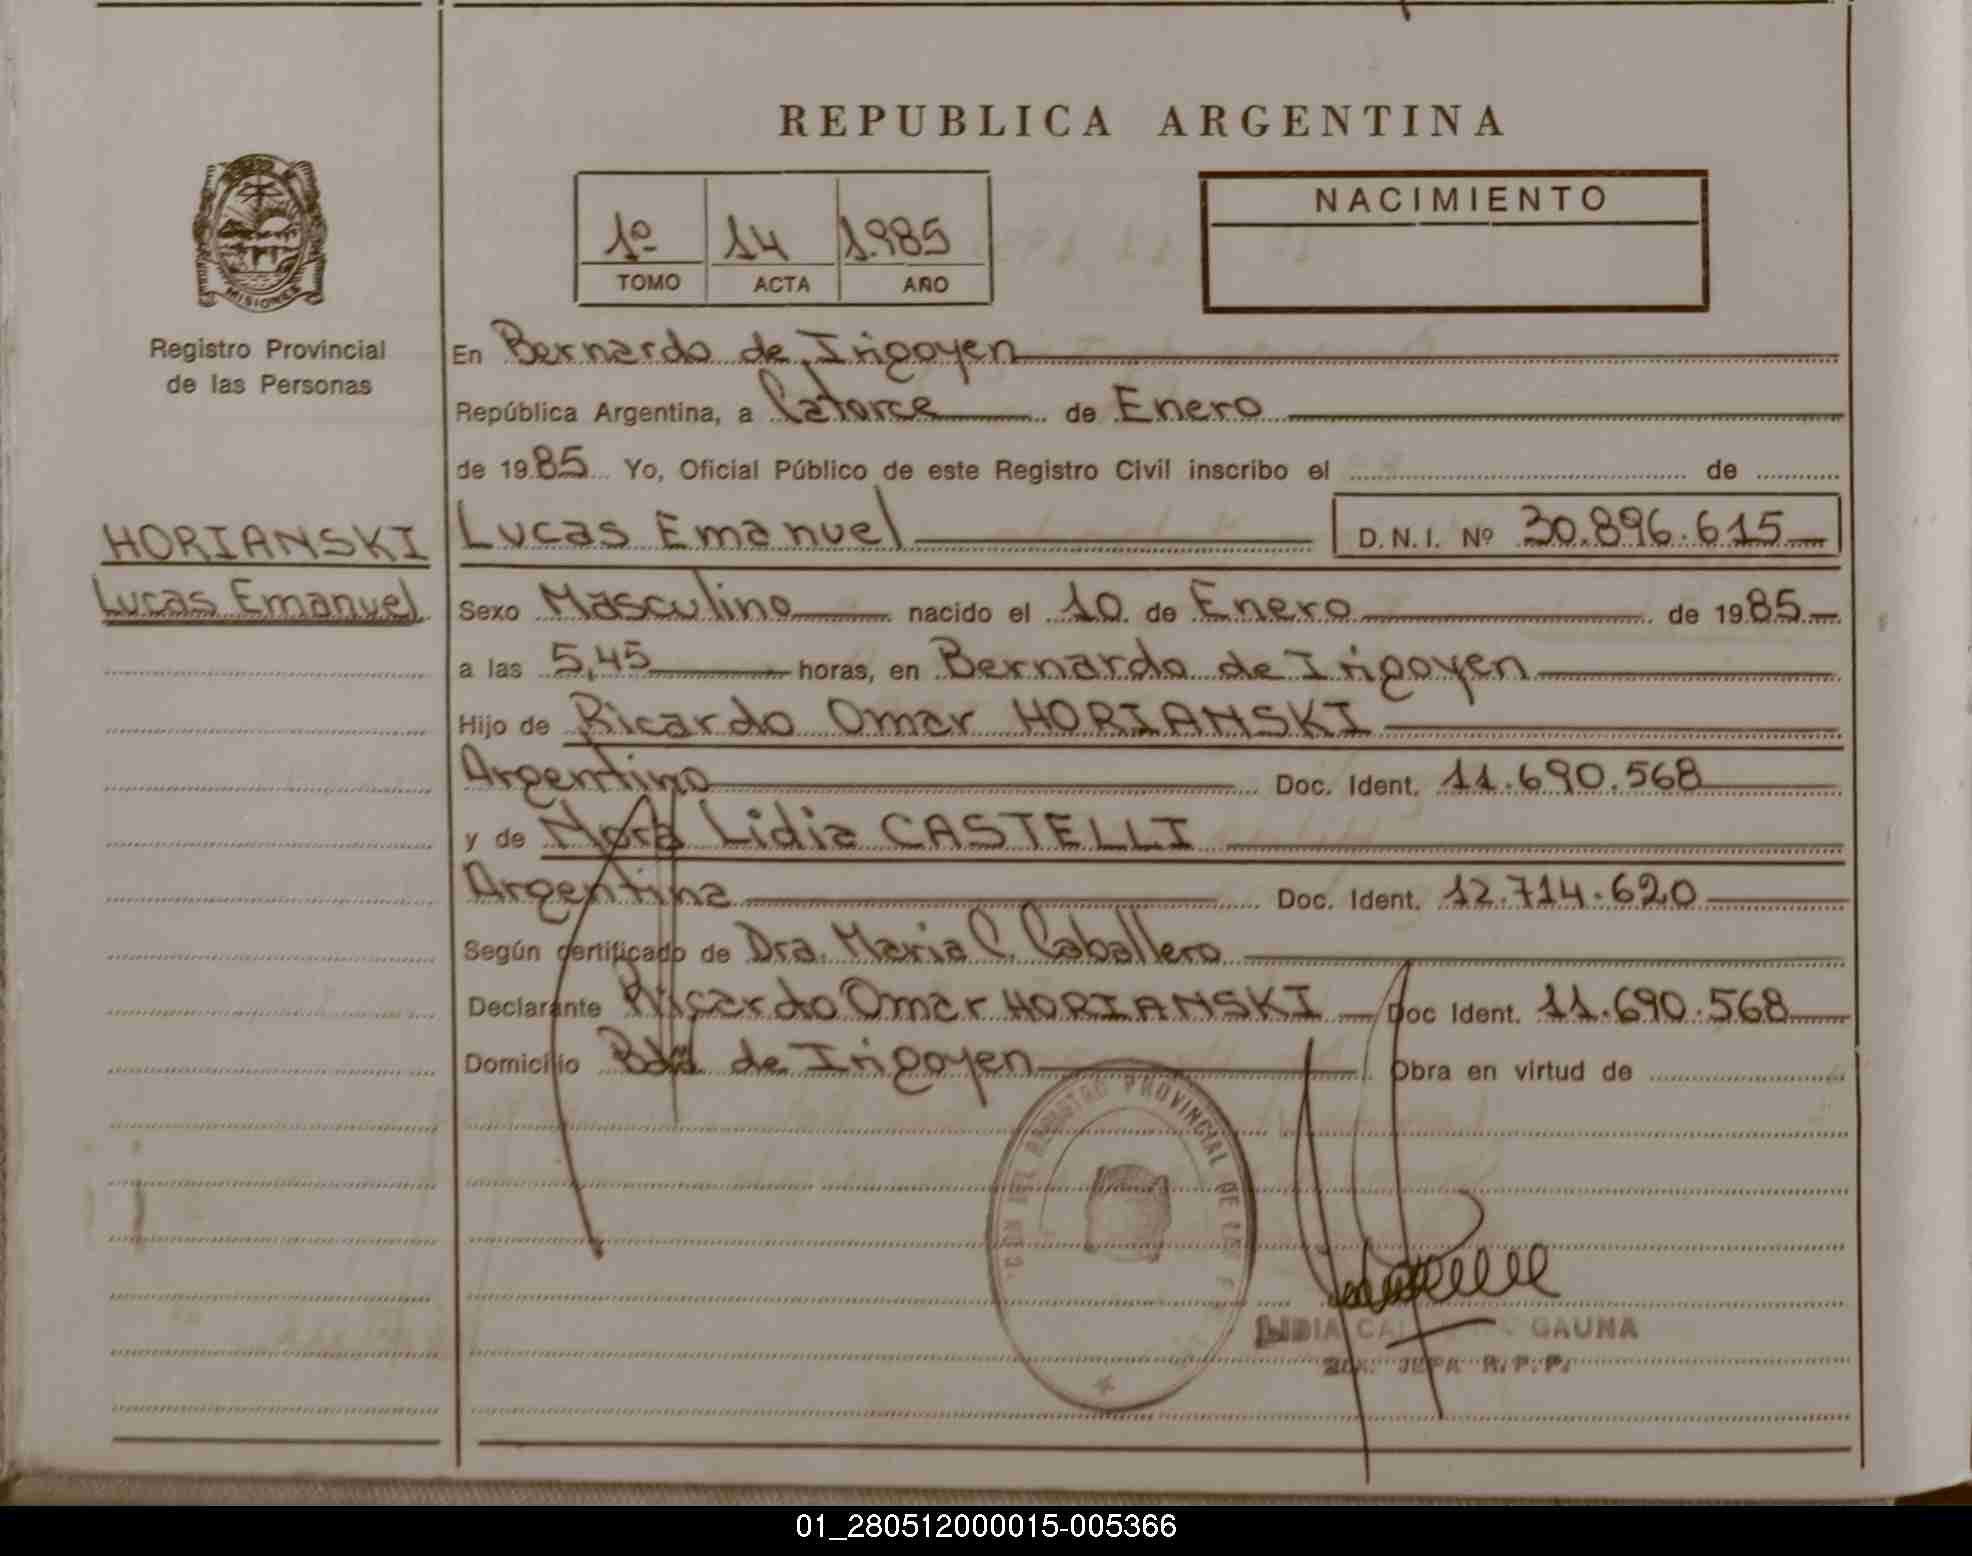 REPUBLICA ARGENTINA
1º 14 1.985
TOMO ACTA AÑO
NACIMIENTO
MISIONES
Registro Provincial
de las Personas
HORIANSKI
Lucas Emanuel
En Bernardo de Irigoyen
República Argentina, a Catorce de Enero
de 1985 Yo, Oficial Público de este Registro Civil inscribo el de
Lucas Emanuel D.N.I. Nº 30.896.615
Sexo Masculino nacido el 10 de Enero de 1985
a las 5,45 horas, en Bernardo de Irigoyen
Hijo de Ricardo Omar HORIANSKI
Argentino Doc. Ident. 11.690.568
y de Nora Lidia CASTELLI
Argentina Doc. Ident. 12.714.620
Según certificado de Dra. Maria C. Caballero
Declarante Ricardo Omar HORIANSKI Doc Ident. 11.690.568
Domicilio Bdo de Irigoyen Obra en virtud de
REGISTRO PROVINCIAL DE
LIDIA GAUNA
JEFA R.P.P.
01_280512000015-005366